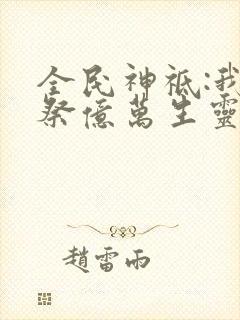 全民神祇:我
祭億萬生靈
趙雷雨